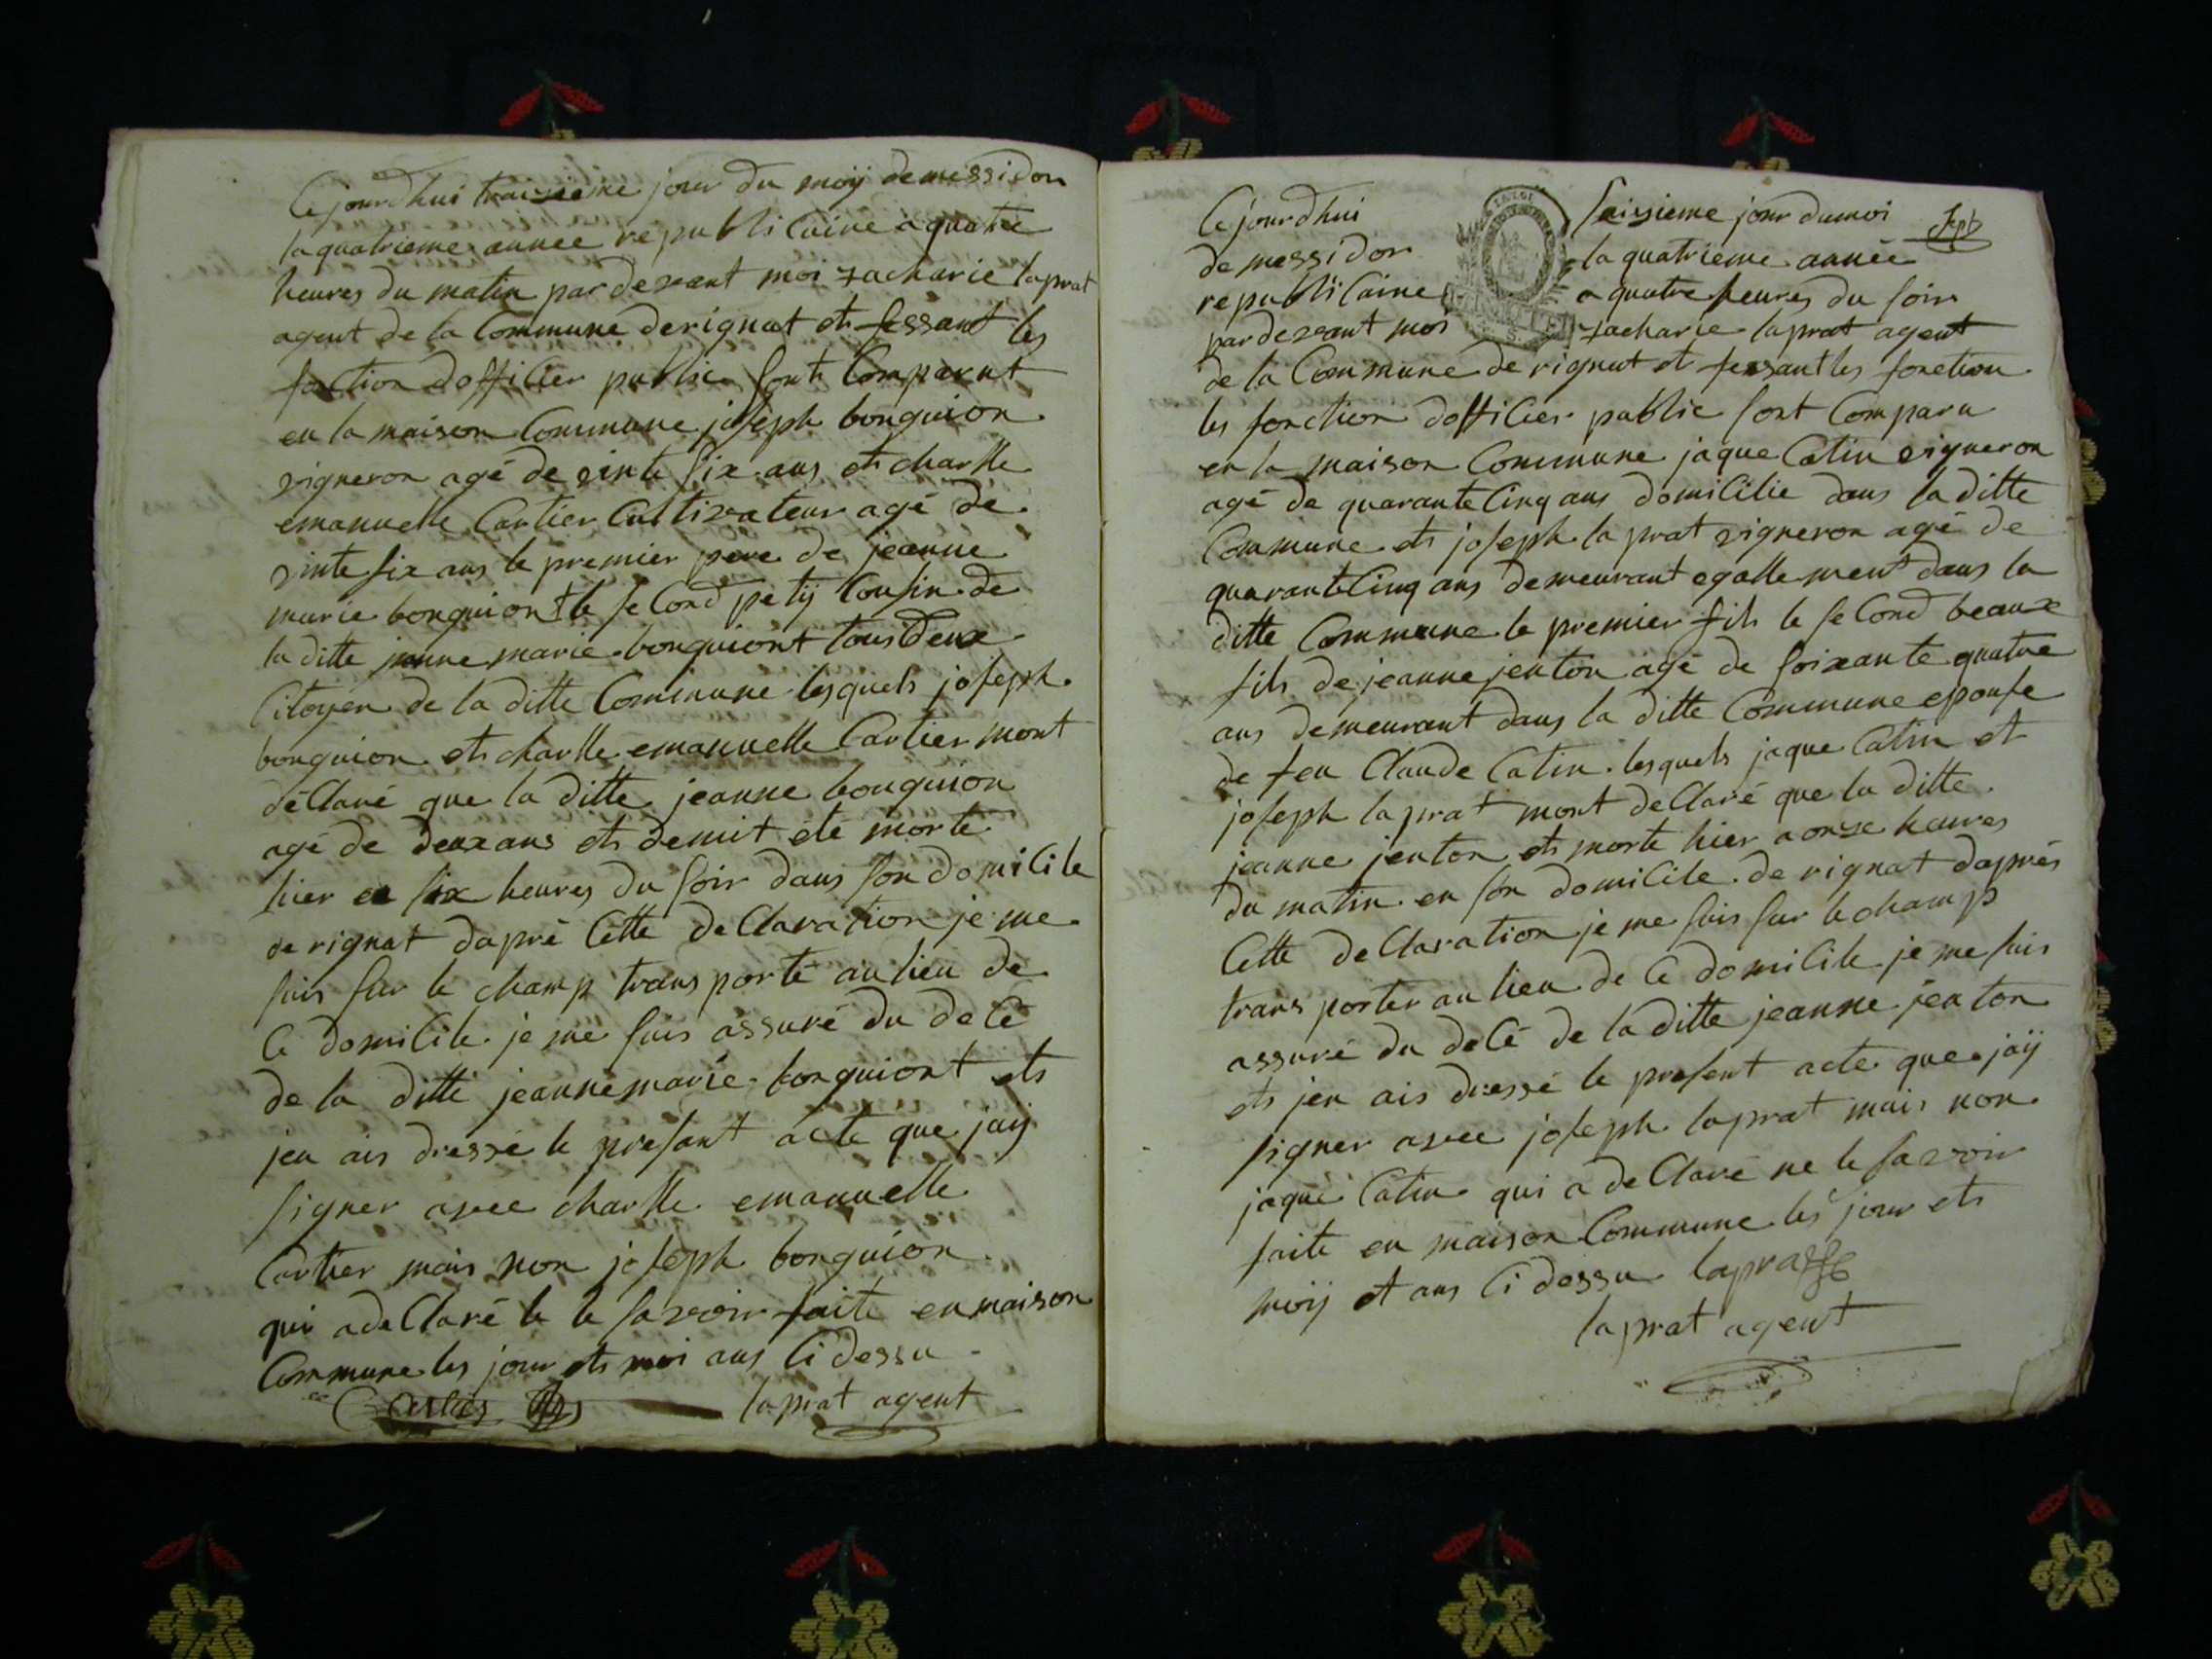 Cejourdhui traizieme jour du moij demessidor
la quatrieme annee republicaine a quatre
heures du matin par devant moi zacharie laprat
agent de la Commune derignat et fessant les
foction dofficier public sont Comparut
en la maison Commune joseph bonguion
vigneron agé de vinte six ans et charlle
emanuelle Cartier Cultivateur agé de
vinte six ans le premier pere de jeanne
marie bonguiont le seCond petij Cousin de
la ditte jeanne marie bonguiont tous deux
Citoyen de la ditte Commune lesquels joseph
bonguion et charlle emanuelle Cartier mont
déClaré que la ditte jeanne bonguion
agé de deux ans et demit été morte
hier a six heures du soir dans son domiCile
de rignat dapré Cette deClaration je me
suis sur le champ transporté au lieu de
Ce domiCile je me suis assuré du deCé
de la ditte jeanne marie bonguiont et
jen ais dressé le presant acte que jaij
signer avec charlle emanuelle
Cartier mais non joseph bonguion
qui a deClaré le le savoir faite en maison
Commune les jour et moi ans Ci dessu
Cartier laprat agent
Cejourdhui saizieme jour dumoi sept
de messidor la quatrieme année
republiCaine a quatre heures du soir
pardevant moi zacharie laprat agent
de la Commune de rignat et fessant les fonction
les fonction dofficier public sont Comparu
en la maison Commune jaque Catin vigneron
agé de quarante Cinq ans domiCilie dans la ditte
Commune et joseph laprat vigneron agé de
quarante Cinq ans demeurant egallement dans la
ditte Commune le premier fils le seCond beaux
fils de jeanne jenton agé de soixante quatre
ans demeurant dans la ditte Commune epouse
de feu Claude Catin lesquels jaque Catin et
joseph laprat mont deClaré que la ditte
jeanne jenton et morte hier a onze heures
du matin en son domiCile de rignat daprés
Cette deClaration je me suis sur le champ
transporter au lieu de Ce domiCile je me suis
assuré du deCé de la ditte jeanne jenton
et jen ais dressé le present acte que jaij
signer avec joseph laprat mais non
jaque Catin qui a deClaré ne le savoir
faite en maison Commune les jour et
moij et ans Ci dessu laprat
laprat agent